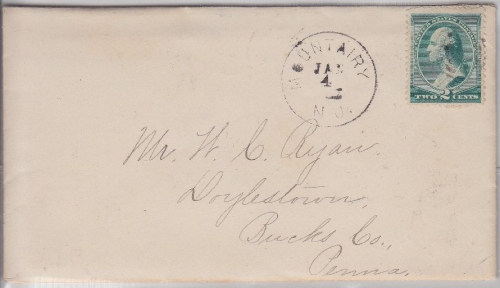 MOUNT AIRY
JAN
4
N.J.
TWO 2 CENTS
Mr. W. C. Ryan.
Doylestown,
Bucks Co.,
Penna.